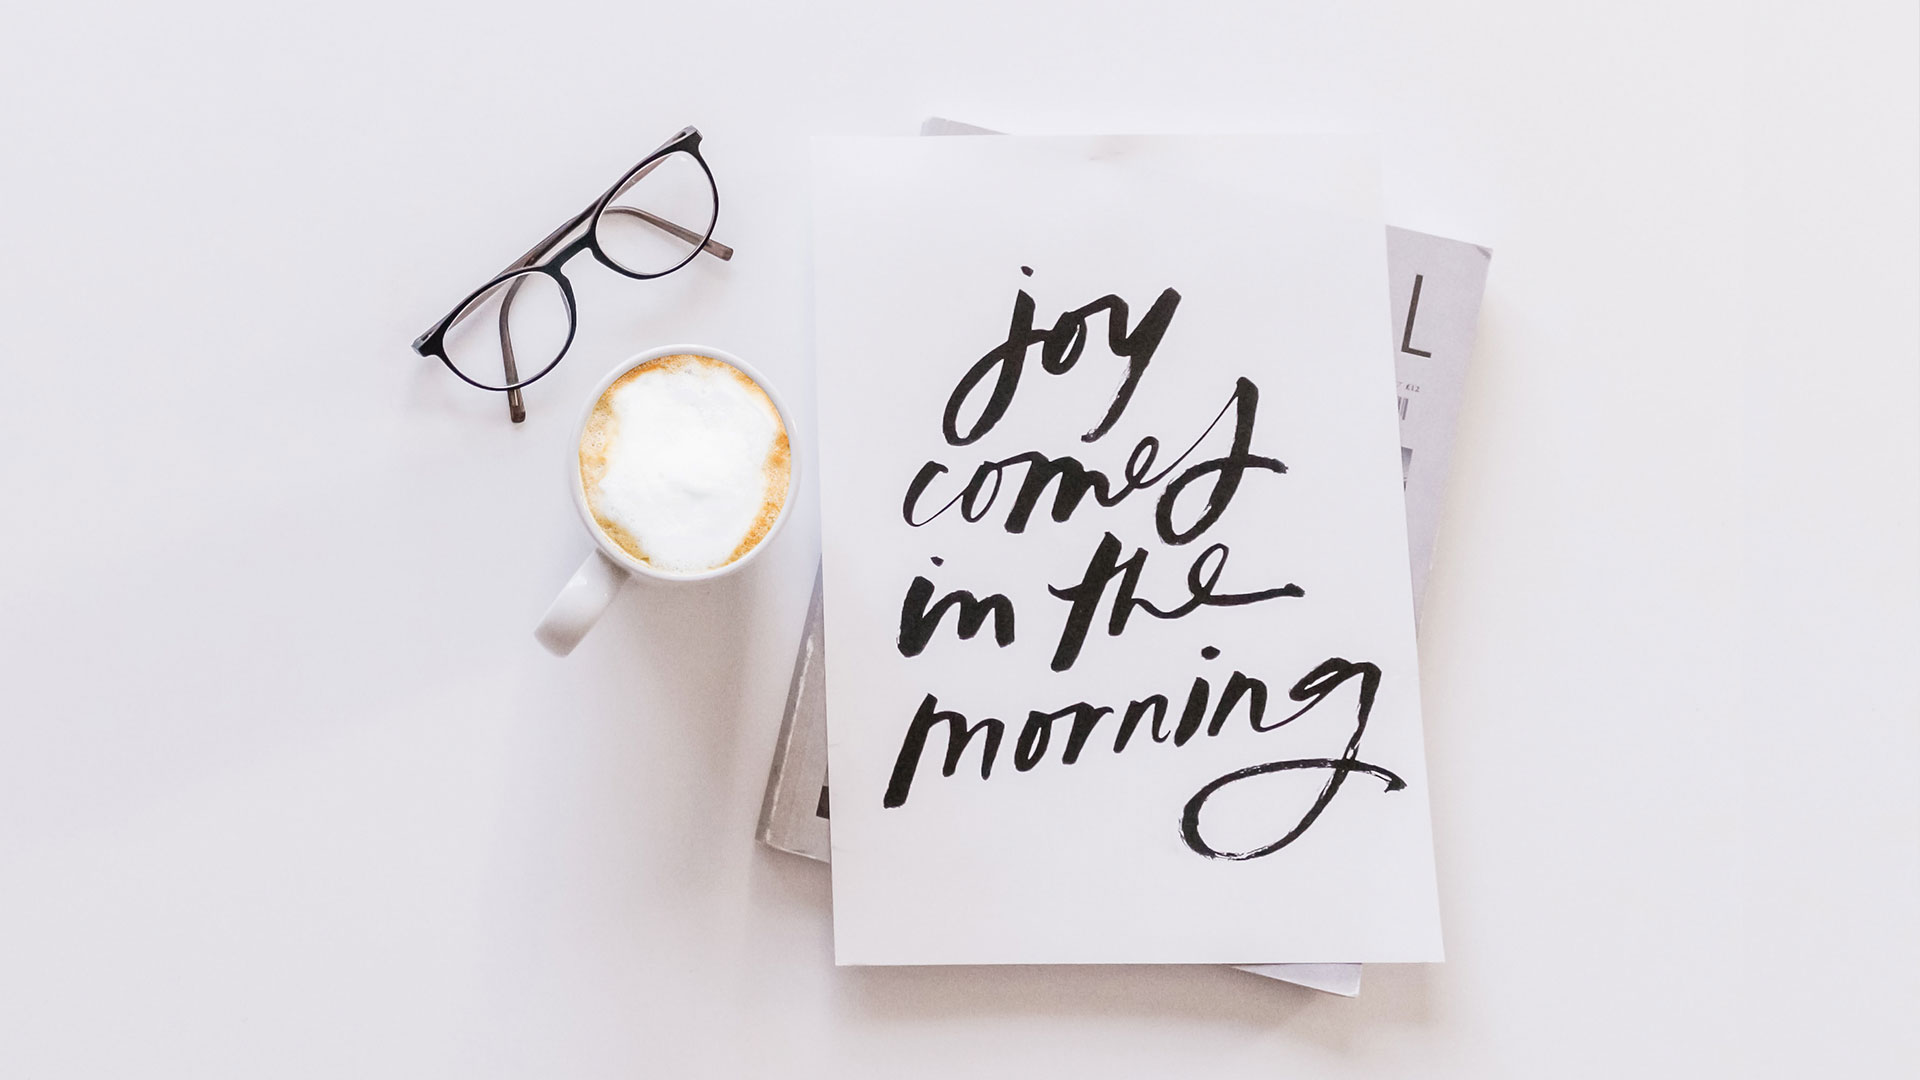 joy
comes
in the
morning
L
£12